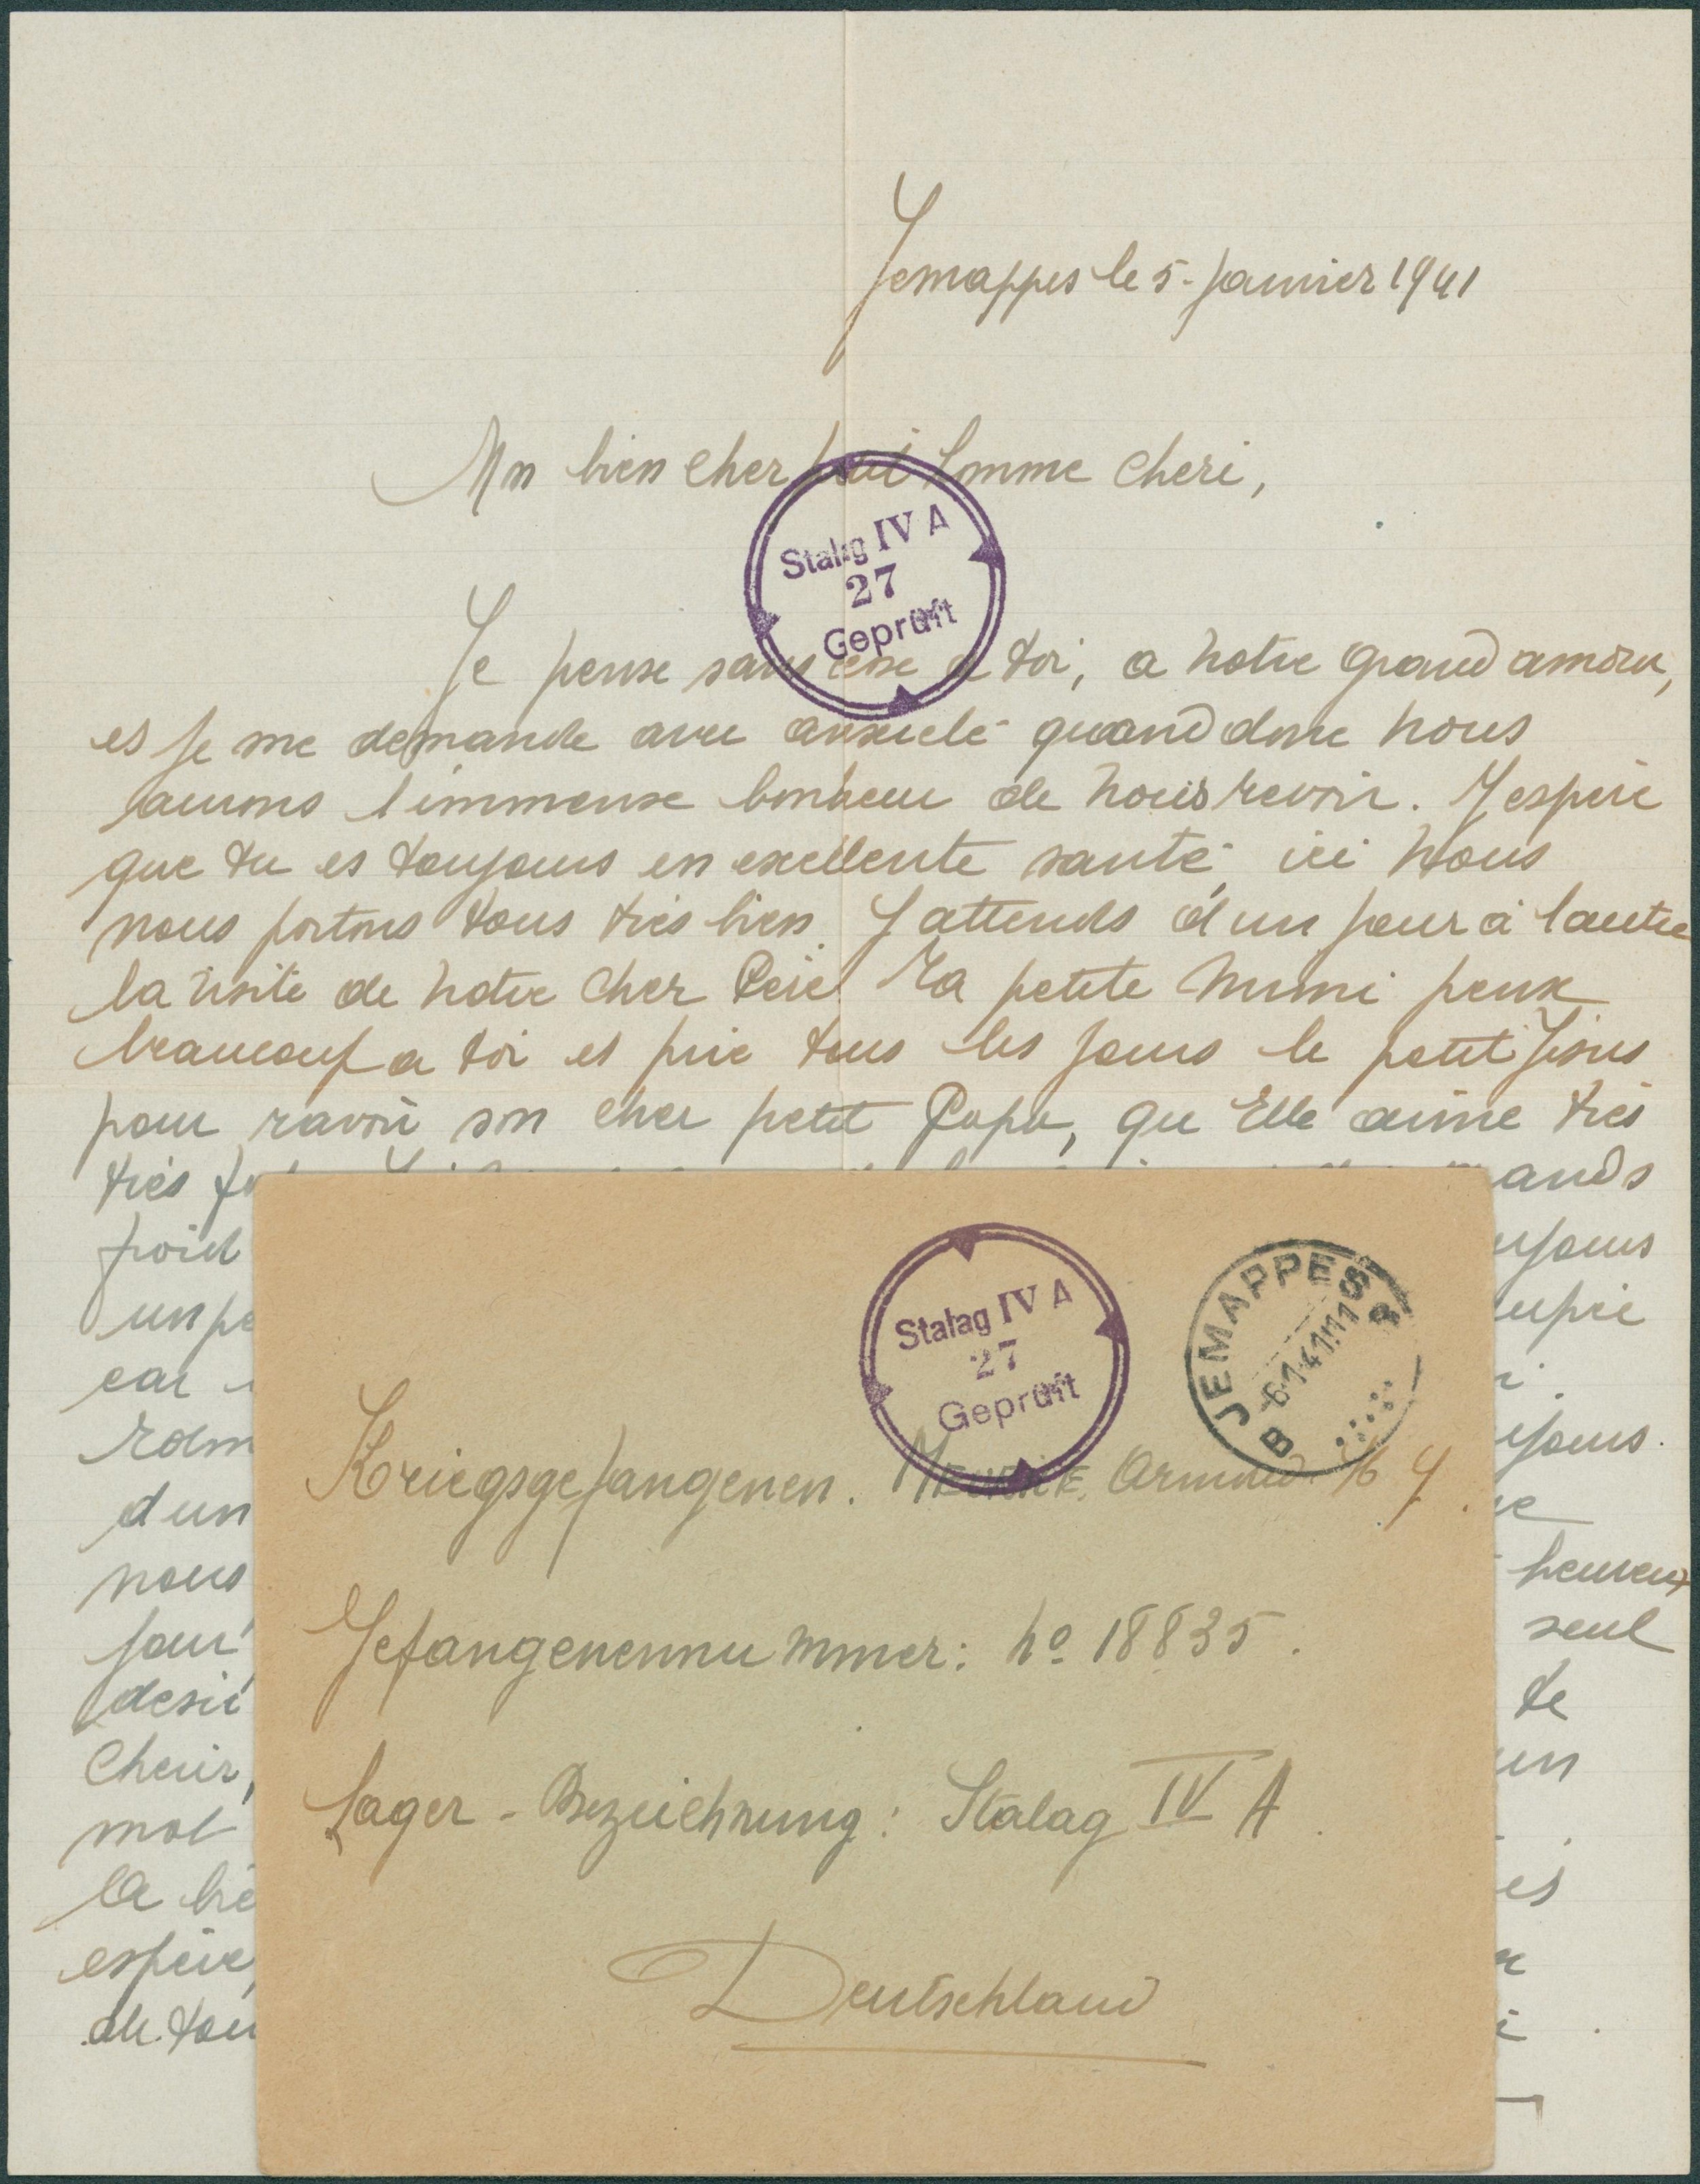 Jemappes le 5 - Janvier 1941
Mn bien cher petit homme cheri,
Stalag IV A
27
Geprüft
Je pense sans cesse a toi, a notre grand amour,
et je me demande avec anxieté quand donc nous
aurons l'immense bonheur de nous revoir. J'espère
que tu es toujours en excellente santé, ici nous
nous portons tous très bien. J'attends d'un jour à l'autre
la visite de notre cher Père. Ta petite Mimi pense
beaucoup a toi et prie tous les jours le petit Jésus
pour ravoir son cher petit Papa, qu'Elle aime très
très
ands
un pe
car
d'un
nous
heureux
jour
seul
desir
te
mot
un
la
espère,
Stalag IV A
27
Geprüft
JEMAPPES
B
-6-1-41 11
Kriegsgefangenen. Armand
Gefangenennummer: no 18835.
Lager - Bezeichnung: Stalag IV A.
Deutschland